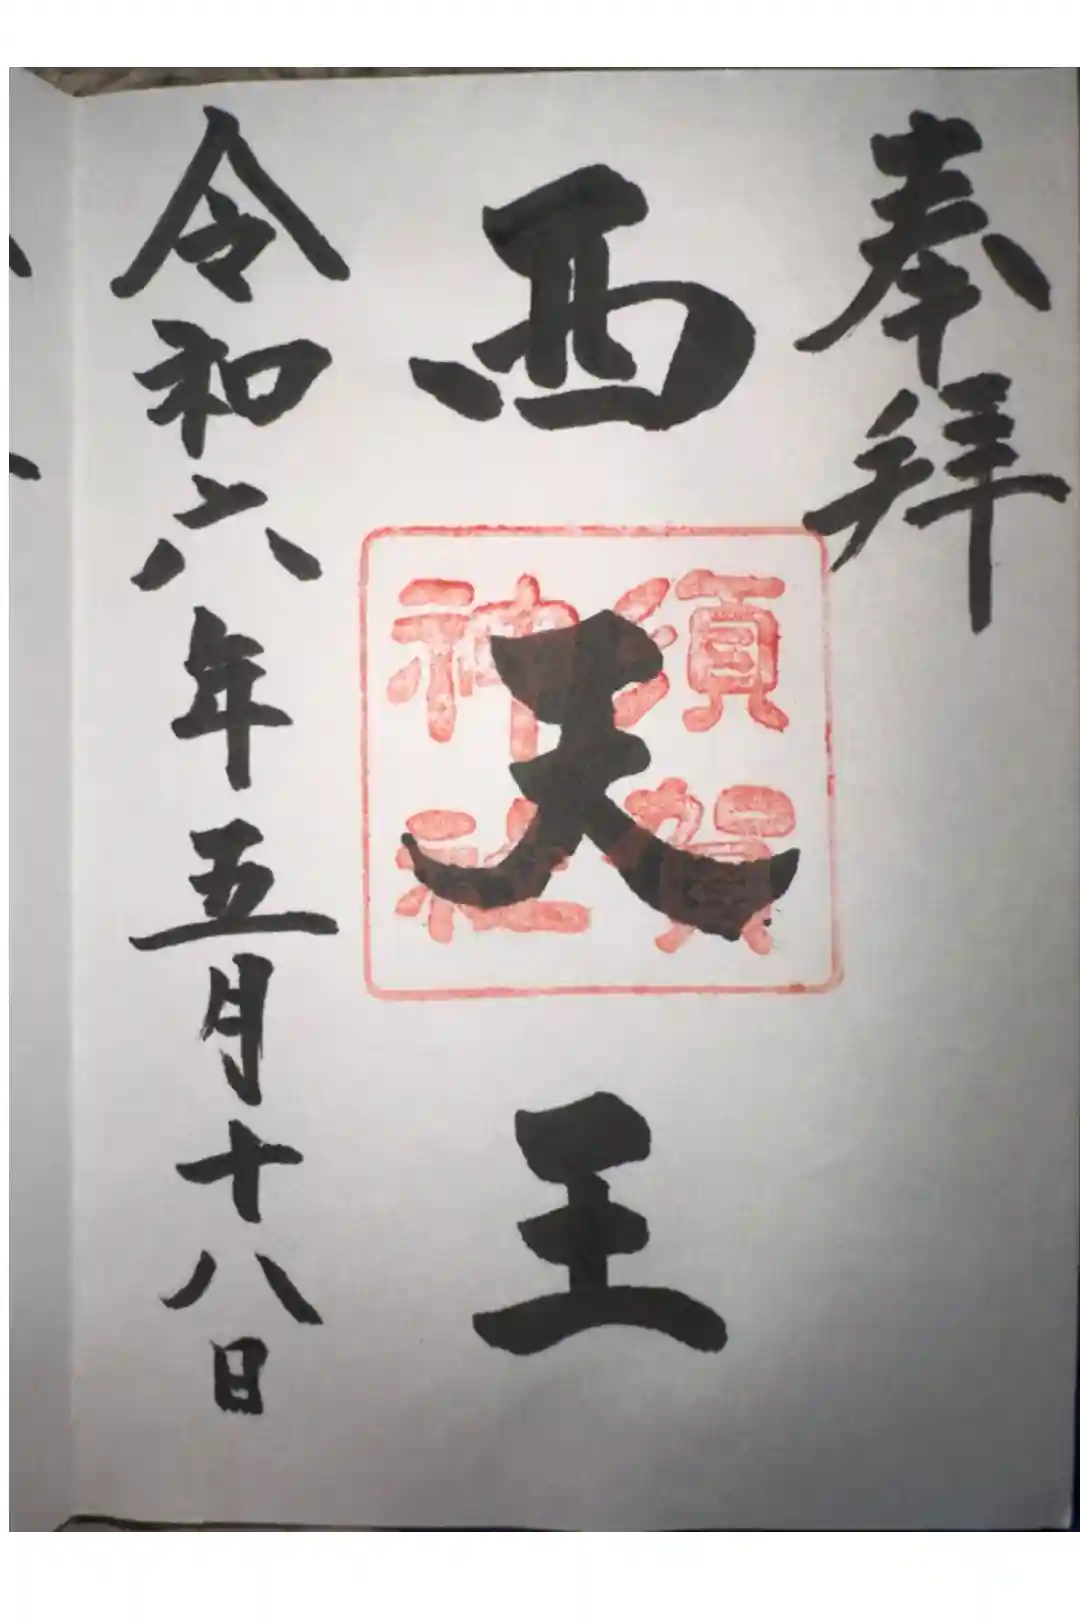 奉拝
西天王
須賀神社
令和六年五月十八日